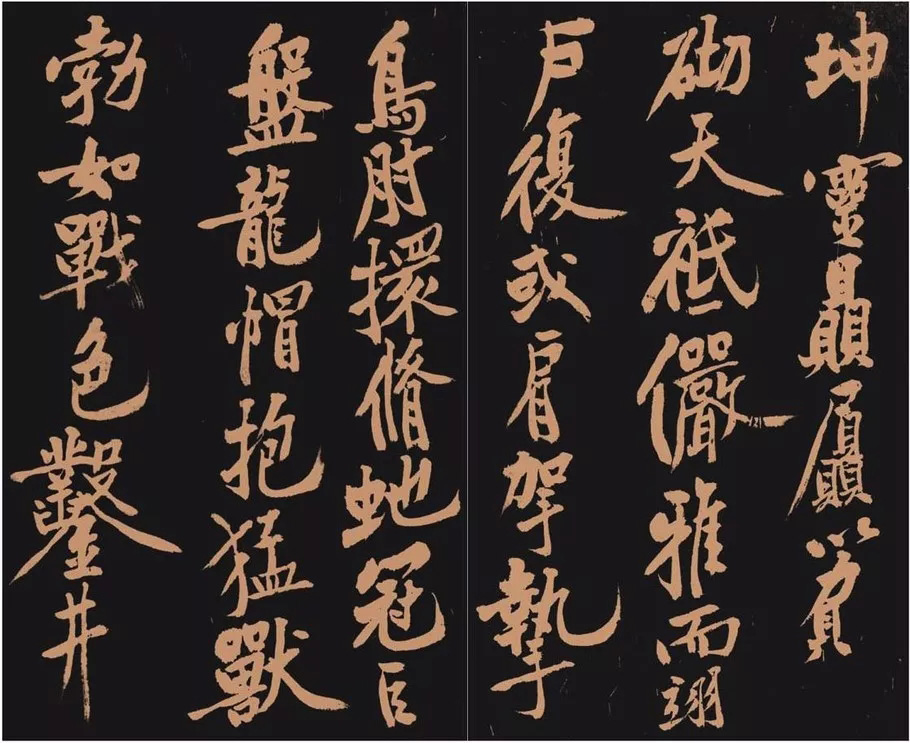 坤靈贔屭以負
砌天祗儼雅而翊
户復或肩挐摯
鳥肘擐脩虵冠巨
盤龍帽抱猛獸
勃如戰色鑿井